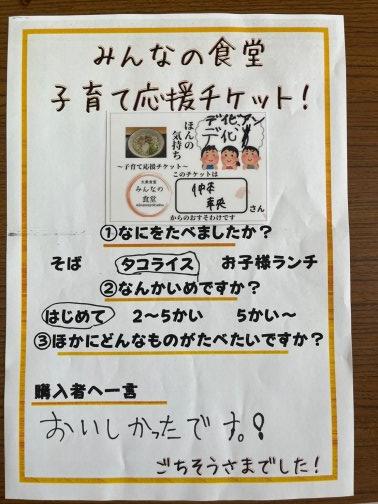 みんなの食堂
子育て応援チケット!
ほんの気持ち
〜子育て応援チケット〜
このチケットは
大衆食堂
みんなの
食堂
さん
からのおすそわけです
①なにをたべましたか?
そば タコライス お子様ランチ
②なんかいめですか?
はじめて 2〜5かい 5かい〜
③ほかにどんなものがたべたいですか?
購入者へ一言
おいしかったです。!
ごちそうさまでした!